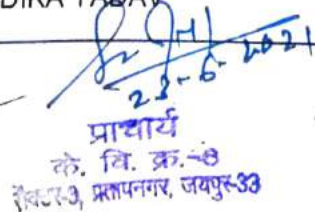 DIKA YADAV
23-6-2021
प्राचार्य
के. वि. क्र.-3
सैक्टर-3, प्रतापनगर, जयपुर-33